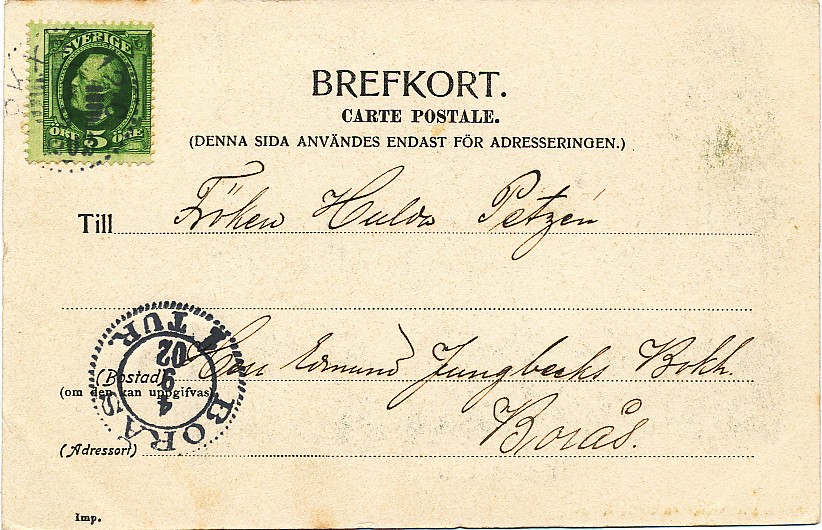 SVERIGE
ÖRT 5 ÖRE
BREFKORT.
CARTE POSTALE.
(DENNA SIDA ANVÄNDES ENDAST FÖR ADRESSERINGEN.)
Till Fröken Hulda Petzén
BORÅS
1 TUR
4
9
02
(Bostad) Herr Edmund Jungbecks Bokh.
(om den kan uppgifvas)
(Adressort) Borås.
Imp.